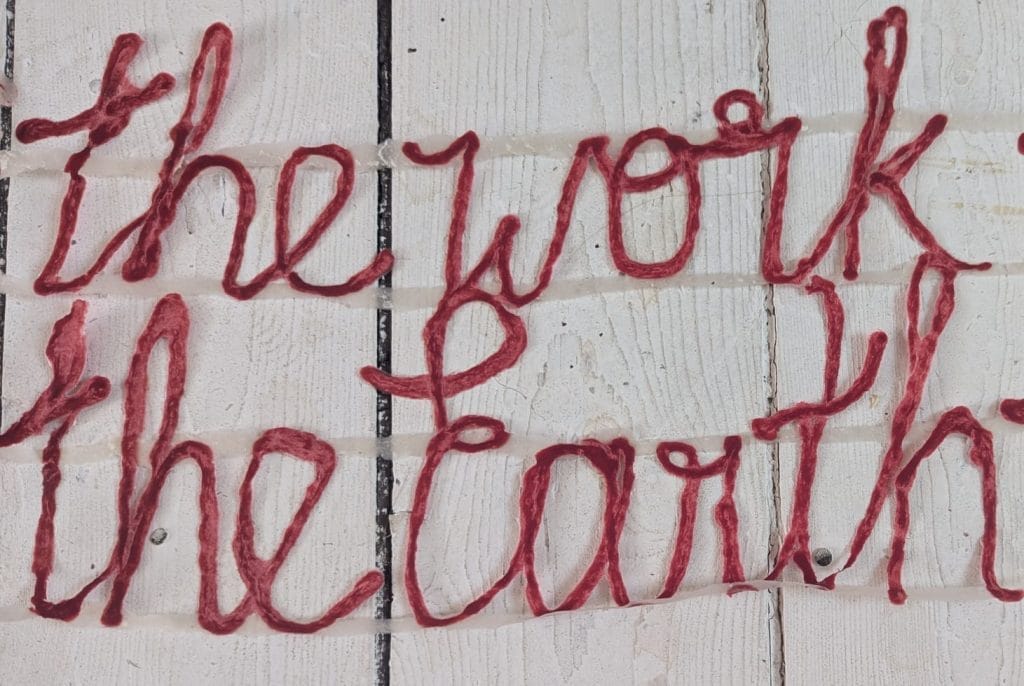 the work
the Earth